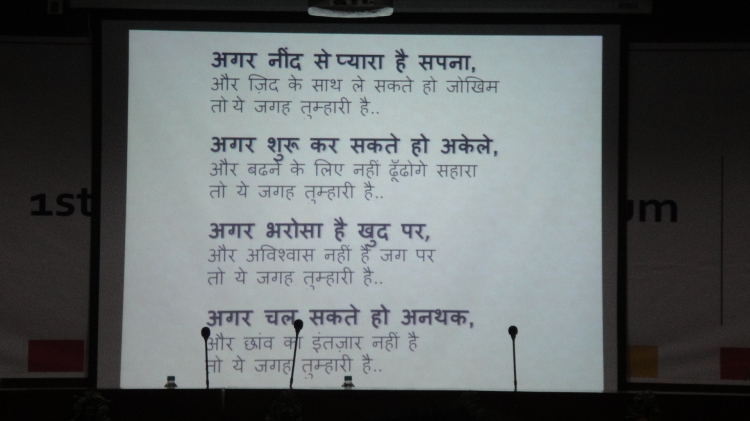 अगर नींद से प्यारा है सपना,
और ज़िद के साथ ले सकते हो जोखिम
तो ये जगह तुम्हारी है..
अगर शुरू कर सकते हो अकेले,
और बढने के लिए नहीं ढूँढोगे सहारा
तो ये जगह तुम्हारी है..
अगर भरोसा है खुद पर,
और अविश्वास नहीं है जग पर
तो ये जगह तुम्हारी है..
अगर चल सकते हो अनथक,
और छांव का इंतज़ार नहीं है
तो ये जगह तुम्हारी है..
1st